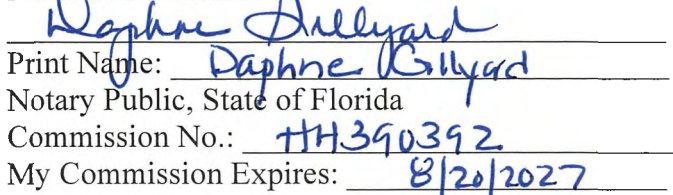 Daphne Gillyard
Print Name: Daphne Gillyard
Notary Public, State of Florida
Commission No.: HH390392
My Commission Expires: 8/20/2027